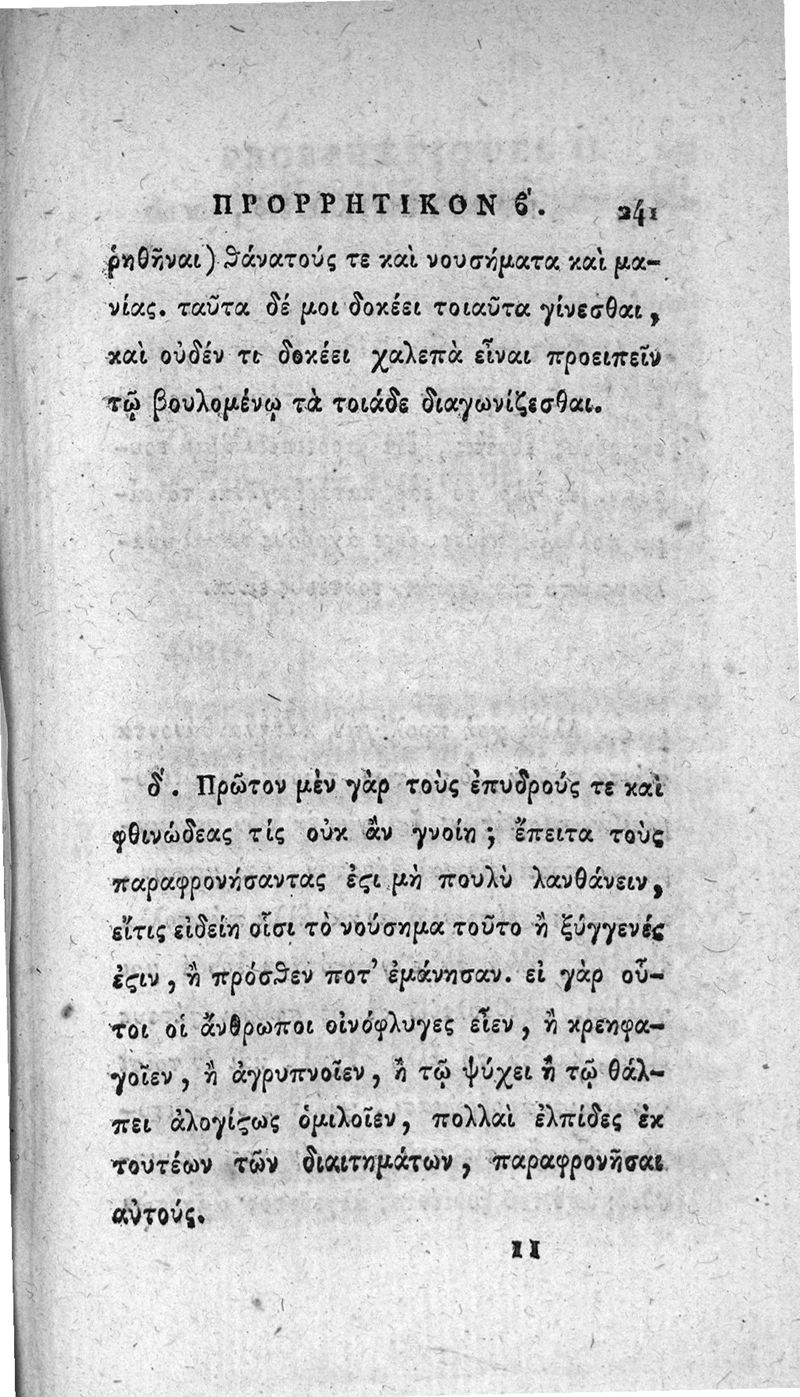 ΠΡΟΡΡΗΤΙΚΟΝ ϐʹ. 241
ῥηθῆναι) ϑάνατούς τε καὶ νουσήματα καὶ μα-
νίας. ταῦτα δέ μοι δοκέει τοιαῦτα γίνεσθαι,
καὶ οὐδέν τι δοκέει χαλεπὰ εἶναι προειπεῖν
τῷ βουλομένῳ τὰ τοιάδε διαγωνίζεσθαι.
δʹ. Πρῶτον μὲν γὰρ τοὺς ἐπυδρούς τε καὶ
φθινώδεας τίς οὐκ ἂν γνοίη; ἔπειτα τοὺς
παραφρονήσαντας ἔϛι μὴ πουλὺ λανθάνειν,
εἴτις εἰδείη οἷσι τὸ νούσημα τοῦτο ἢ ξύγγενές
ἐϛιν, ἢ πρόσϑεν ποτ’ ἐμάνησαν. εἰ γὰρ οὗ-
τοι οἱ ἄνθρωποι οἰνόφλυγες εἶεν, ἢ κρεηφα-
γοῖεν, ἢ ἀγρυπνοῖεν, ἢ τῷ ψύχει ἢ τῷ θάλ-
πει ἀλογίϛως ὁμιλοῖεν, πολλαὶ ἐλπίδες ἐκ
τουτέων τῶν διαιτημάτων, παραφρονῆσαι
αὐτούς.
II